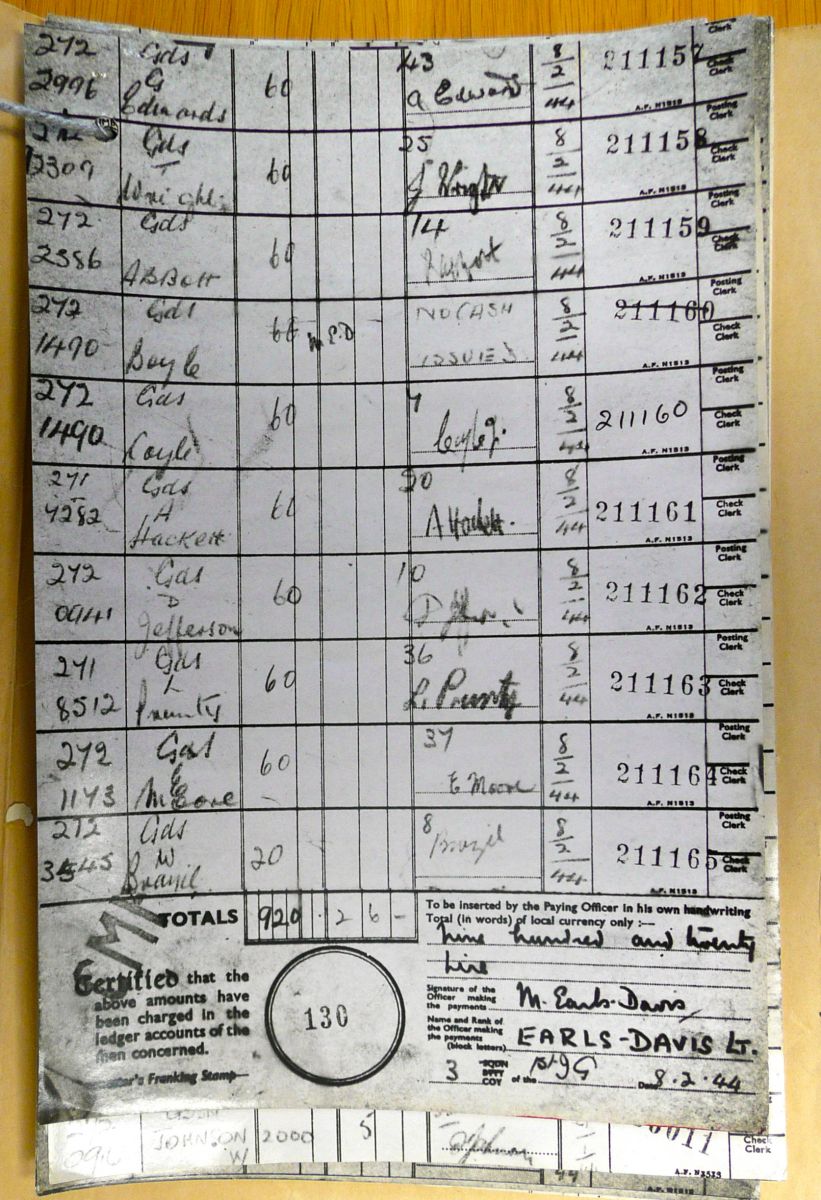 Clerk
272 Gds 43 8 211157
2996 G 60 2 Check
Edwards A Edwards 44 Clerk
A.F. N1513
Posting
Clerk
Gds 25 8 211158
2309 T 60 2 Check
Wright J Wright 44 Clerk
A.F. N1513
Posting
Clerk
272 Gds 14 8 211159
2386 60 2 Check
ABBott 44 Clerk
A.F. N1513
Posting
Clerk
272 Gds NO CASH 8 211160
1490 60 2 Check
Boyle ISSUED 44 Clerk
A.F. N1513
Posting
Clerk
272 Gds 7 8 211160
1490 60 2 Check
Coyle Coyle J. 44 Clerk
A.F. N1513
Posting
Clerk
271 Gds 20 8 211161
4282 A 60 2 Check
Hackett A Hackett. 44 Clerk
A.F. N1513
Posting
Clerk
272 Gds 10 8 211162
0941 D 60 2 Check
Jefferson D 44 Clerk
A.F. N1513
Posting
Clerk
271 Gds 36 8 211163
8512 L 60 2 Check
Prunty L. Prunty 44 Clerk
A.F. N1513
Posting
Clerk
272 Gds 37 8 211164
1173 E 60 2 Check
Moore E Moore 44 Clerk
A.F. N1513
Posting
Clerk
272 Gds 8 8 211165
3545 W 20 2 Check
Brazil Brazil 44 Clerk
A.F. N1513
TOTALS 920 2 6 -
To be inserted by the Paying Officer in his own handwriting
Total (in words) of local currency only :—
Nine hundred and twenty
lire
Certified that the
above amounts have
been charged in the
ledger accounts of the
men concerned.
130
Signature of the
Officer making
the payments
M. Earls-Davis
Name and Rank of
the Officer making
the payments
(block letters)
EARLS-DAVIS LT.
3 SQDN
BTTY
COY of the 1st I G Date 8.2.44
Franking Stamp
JOHNSON 2000 5 0011
W
Check
Clerk
A.F. N1513